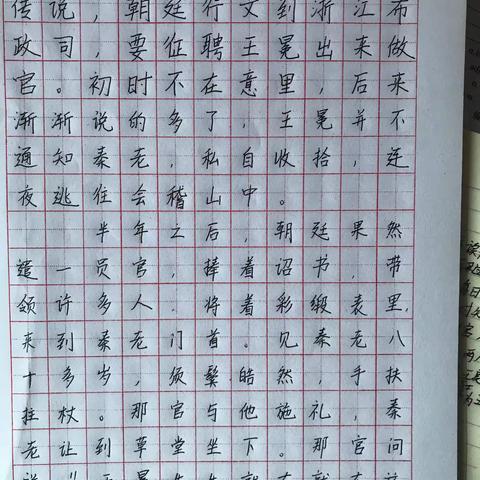 传说，朝廷行文到浙江布
政司，要征聘王冕出来做
官。初时不在意里，后来
渐渐说的多了，王冕并不
通知秦老，私自收拾，连
夜逃往会稽山中。
半年之后，朝廷果然
遣一员官，捧着诏书，带
领许多人，将着彩缎表里，
来到秦老门首。见秦老八
十多岁，须鬓皓然，手扶
拄杖。那官与他施礼，秦
老让到草堂坐下。那官问